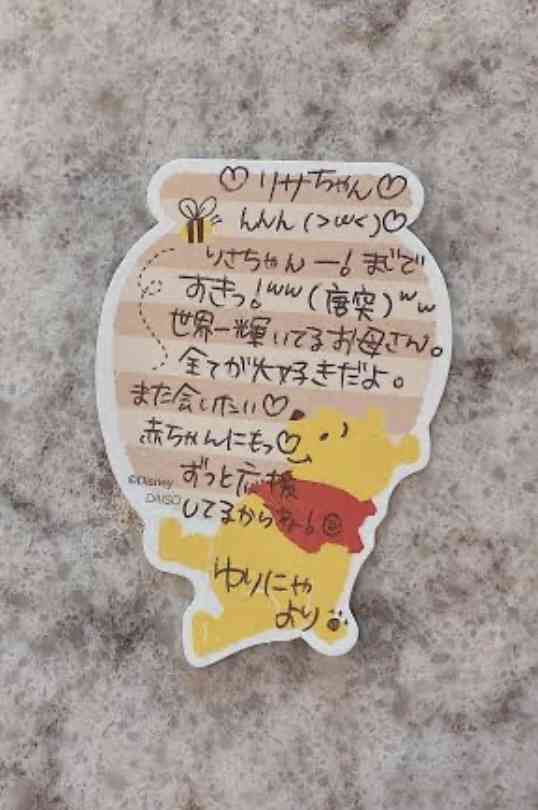 ♡リサちゃん♡
んんん(>ω<)♡
りさちゃんー!まじで
すきっ!ww(唐突)ww
世界一輝いてるお母さん。
全てが大好きだよ。
また会いたい♡
赤ちゃんにもっ♡
ずっと応援
©Disney
DAISO
してるからね!
ゆりにゃ
より